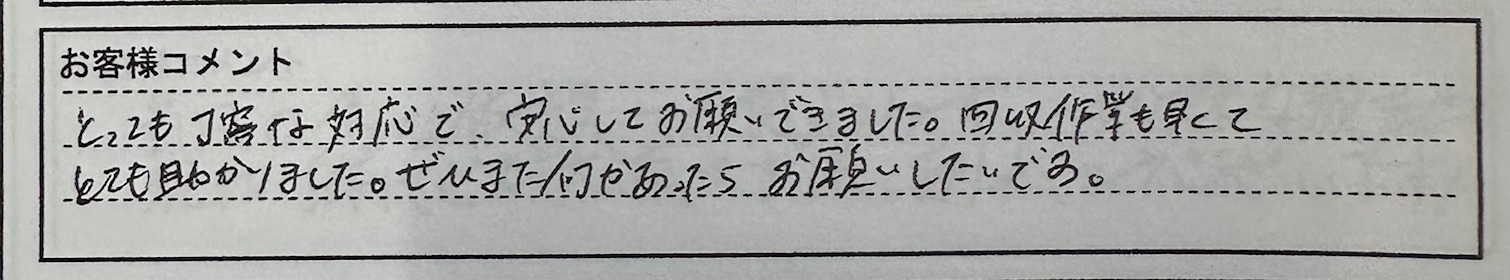 お客様コメント
とっても丁寧な対応で、安心してお願いできました。回収作業も早くて
とても助かりました。ぜひまた何かあったらお願いしたいです。